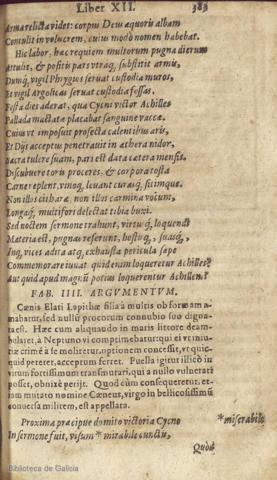 Liber XII. 383
Arma relicta videt: corpus Deus æquoris albam
Contulit in volucrem, cuius modò nomen habebat.
Hic labor, hæc requiem multorum pugna dierum
Attulit, & positis pars vtraq, substitit armis,
Dumq, vigil Phrygios seruat custodia muros,
Et vigil Argolicas seruat custodia fossas,
Festa dies aderat, qua Cycni victor Achilles
Pallada mactatæ placabat sanguine vaccæ.
Cuius vt imposuit prosecta calentibus aris,
Et Dijs acceptus penetrauit in æthera nidor,
Sacra tulere suam, pars est data cætera mensis.
Discubuere toris proceres, & corpora tosta
Carne replent, vinoq, leuant curasq, sitimque.
Non illos citharæ, non illos carmina vocum,
Longaq, multifori delectat tibia buxi.
Sed noctem sermone trahunt, virtusq, loquendi
Materia est, pugnas referunt, hostiuq,, suasq,,
Inq, vices adita atq, exhausta pericula sæpe
Commemorare iuuat quid enim loqueretur Achilles?
Aut quid apud magnũ potius loquerentur Achillem?
FAB. IIII. ARGVMENTVM.
Cænis Elati Lapithæ filia à multis ob formam a-
mabatur, sed nulliꝰ procorum connubio suo digna-
ta est. Hæc cum aliquando in maris littore deam-
bularet, à Neptuno vi comprimebatur: qui ei vt
crimẽ à se moliretur, optionem concessit, vt quic-
quid peteret, acceptum ferret. Puella igitur illico in
virum fortissimum transmutari, qui a nullo vulnerari
posset, obnixè petijt. Quod cùm consequeretur, et-
iam mutato nomine Cæneus, virgo in bellicosissimũ
conuersa militem, est appellata.
Proxima præcipue domito victoria Cycno
In sermone fuit, visum * mirabile cunctis, *miserabile
Quod
Biblioteca de Galicia